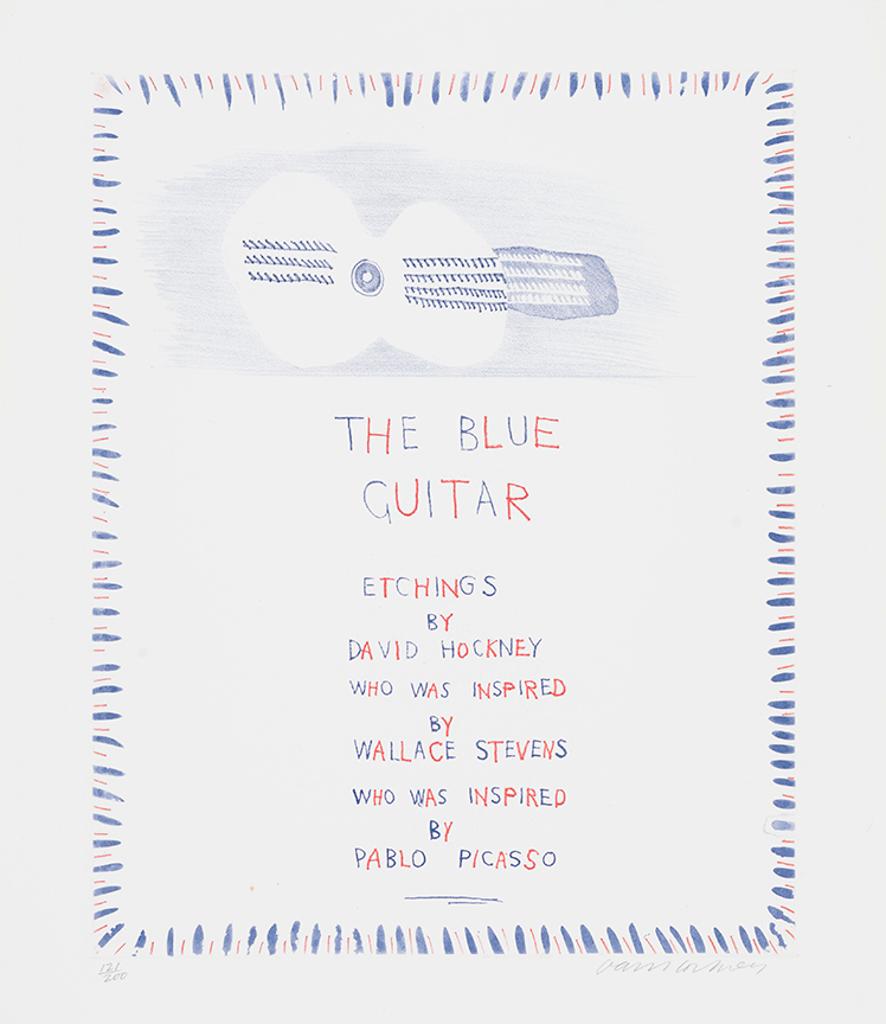 THE BLUE
GUITAR
ETCHINGS
BY
DAVID HOCKNEY
WHO WAS INSPIRED
BY
WALLACE STEVENS
WHO WAS INSPIRED
BY
PABLO PICASSO
200